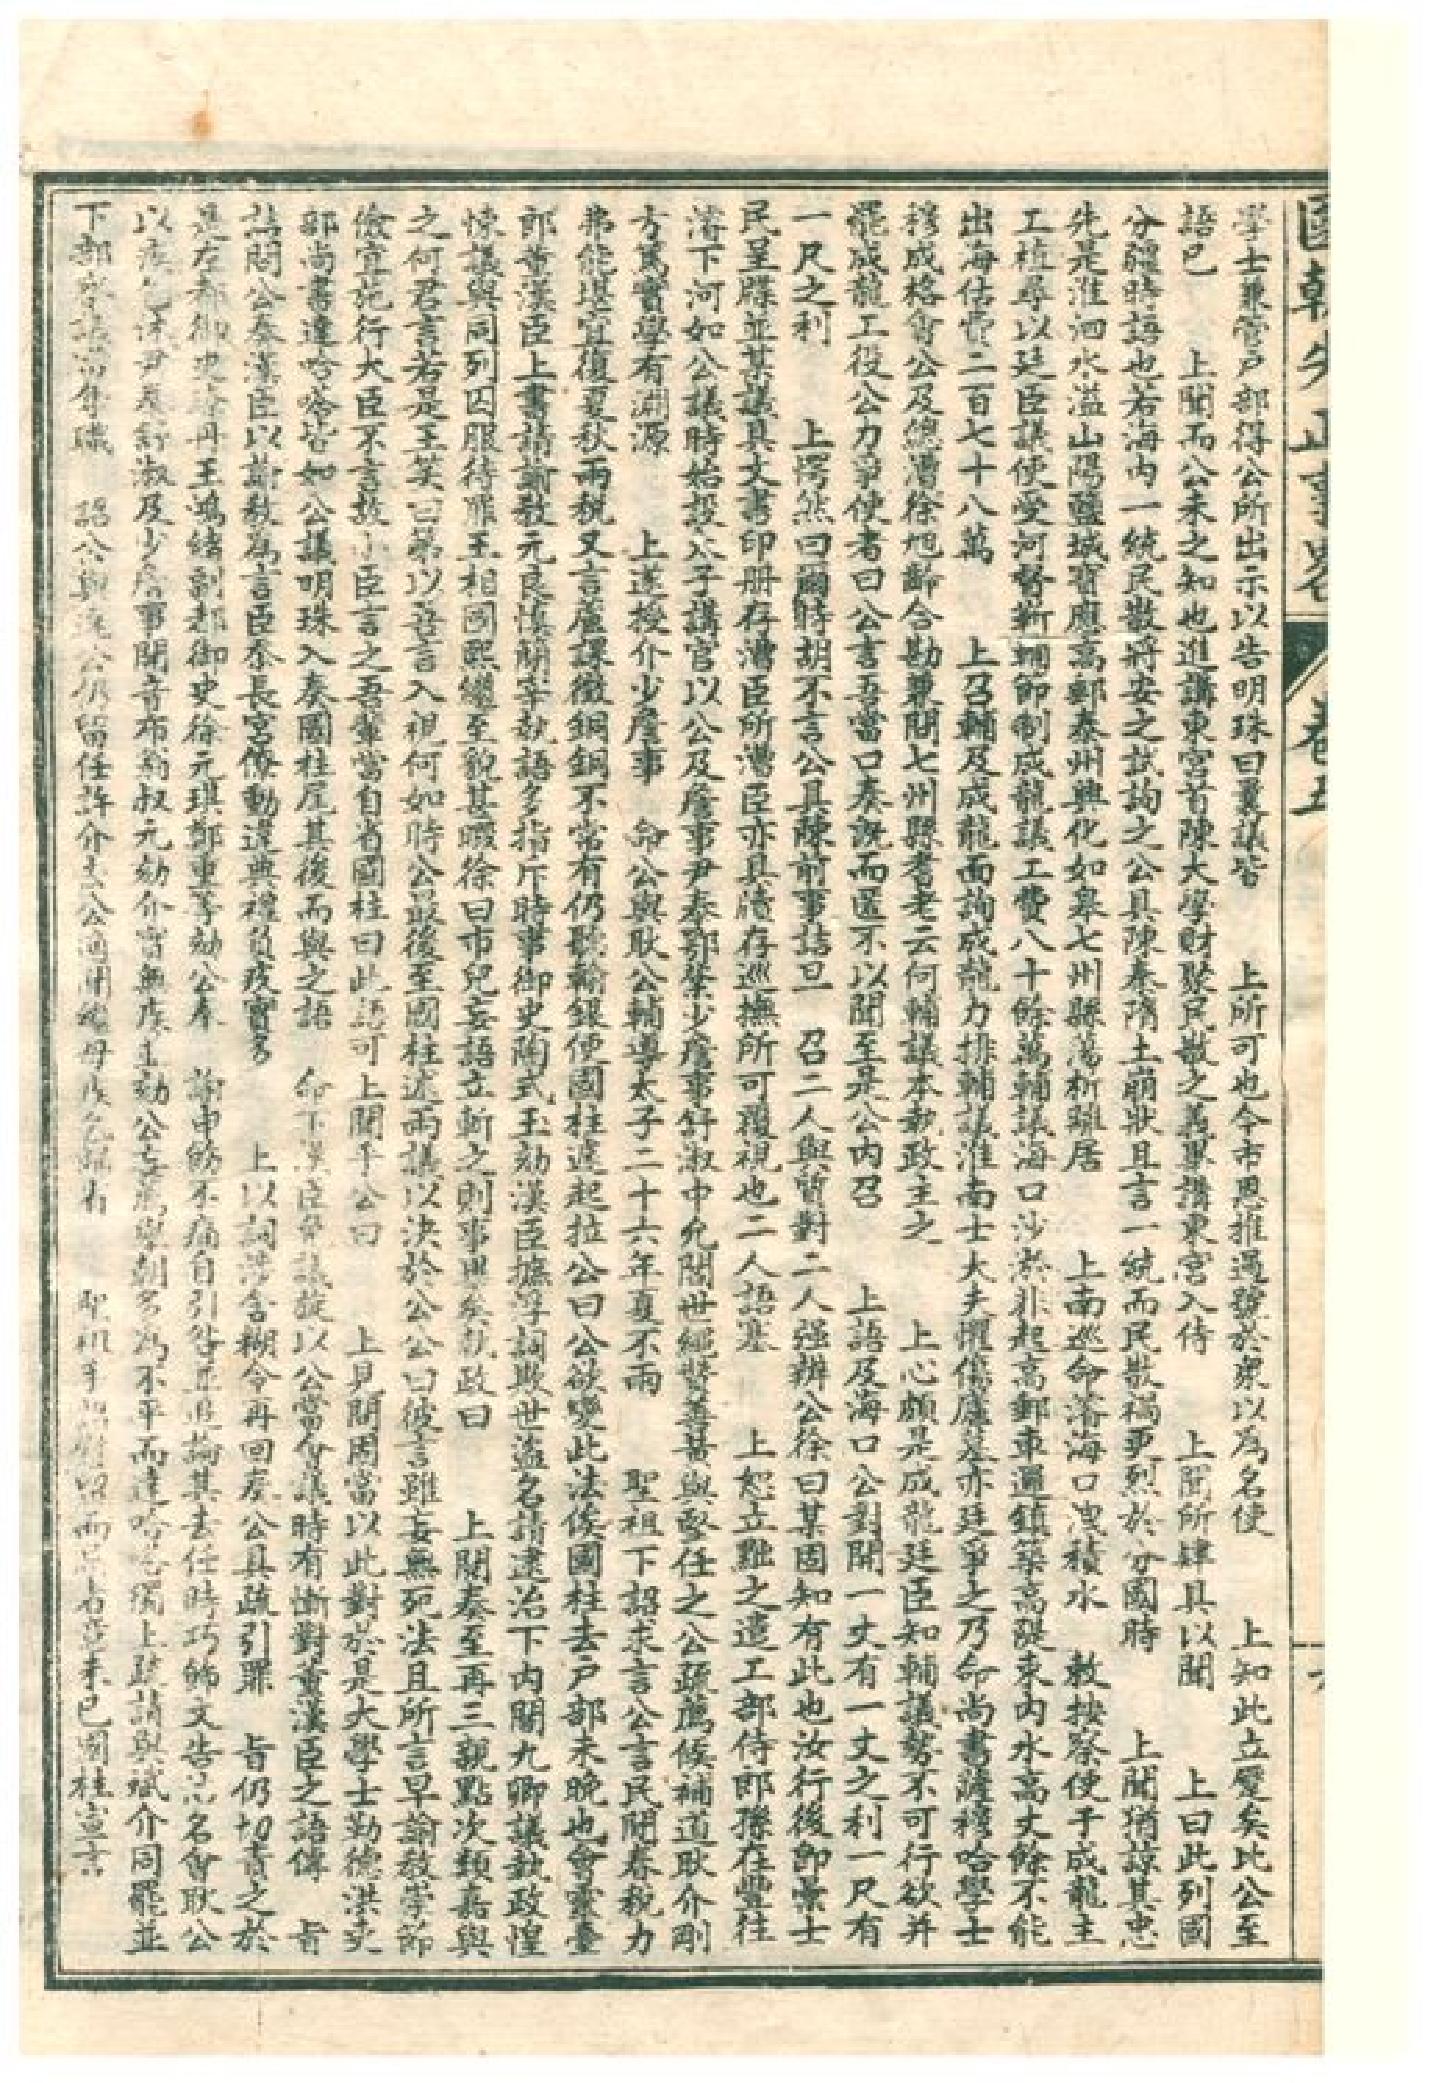 國朝先正事畧 卷五
學士兼管戶部得公所出示以告明珠曰曩議皆 上所可也今市恩推過號於衆以爲名使 上知此立壁矣比公至
語已 上聞而公未之知也進講東宮首陳大學財聚民散之義畢講東宮入侍 上閱所肄具以聞 上曰此列國
分疆時語也若海內一統民散將安之試詢之公具陳秦隋土崩狀且言一統而民散禍更烈於分國時 上聞猶諒其忠
先是淮泗水溢山陽鹽城寶應高郵泰州興化如皋七州縣蕩析離居 上南巡命濬海口洩積水 敕按察使于成龍主
工植尋以廷臣議使受河督靳輔節制成龍議工費八十餘萬輔議海口沙淤非起高郵車邏鎮築高隄束內水高丈餘不能
出海估費二百七十八萬 上召輔及成龍面詢成龍力排輔議淮南士大夫懼傷廬墓亦廷爭之乃命尚書薩穆哈學士
穆成格會公及總漕徐旭齡合勘兼問七州縣耆老云何輔議本執政主之 上心頗是成龍廷臣知輔議勢不可行欲并
罷成龍工役公力爭使者曰公言吾當口奏旣而匿不以聞至是公內召 上語及海口公對開一丈有一丈之利一尺有
一尺之利 上愕然曰爾時胡不言公具陳前事詰旦 召二人與質對二人强辨公徐曰某固知有此也汝行後卽彙士
民呈牒並某議具文書印册存漕臣所漕臣亦具牘存巡撫所可覆視也二人語塞 上恕立黜之遣工部侍郎孫在豐往
濬下河如公議時始設太子講官以公及詹事尹泰鄂棻少詹事舒淑中允閻世繩督善黃與堅任之公疏薦候補道耿介剛
方篤實學有淵源 上遂授介少詹事 命公與耿公輔導太子二十六年夏不雨 聖祖下詔求言公言民閒春稅力
弗能堪宜復夏秋兩稅又言蘆課徵銅銅不常有仍聽輸銀便國柱遽起拉公曰公欲變此法俟國柱去戶部未晚也會靈臺
郎董漢臣上書請諭教元良愼𥳑宰執語多指斥時事御史陶式玉劾漢臣摭浮詞欺世盜名請逮治下內閣九卿議執政惶
悚議與同列囚服待罪王相國熙繼至貌甚暇徐曰市兒妄語立斬之則事畢矣執政曰 上閱奏至再三親點次類嘉與
之何君言若是王笑曰第以吾言入視何如時公最後至國柱述兩議以決於公公曰彼言雖妄無死法且所言早諭教崇節
儉宜施行大臣不言故小臣言之吾輩當自省國柱曰此語可上聞乎公曰 上見問固當以此對於是大學士勒德洪吏
部尚書達哈塔皆如公議明珠入奏國柱尾其後而與之語 命下漢臣免議旋以公當會議時有慚對董漢臣之語傳 旨
詰問公奏漢臣以諭教爲言臣忝長宮僚動違典禮負疚實多 上以詞涉含糊令再回奏公具疏引罪 旨仍切責之於
是左都御史璙丹王鴻緒副都御史徐元珙鄭重等劾公奉 諭申飭不痛自引咎並追論其去任時巧飾文告沽名會耿公
以疾乞休尹泰舒淑及少詹事開音布翁叔元劾介實無疾並劾公妄薦擧朝多爲不平而達哈塔獨上疏請與斌介同罷並
下部察議當奪職 詔公與達公仍留任許介去公適聞繼母疾乞歸省 聖祖手詔慰留而忌者意未已國柱宣言